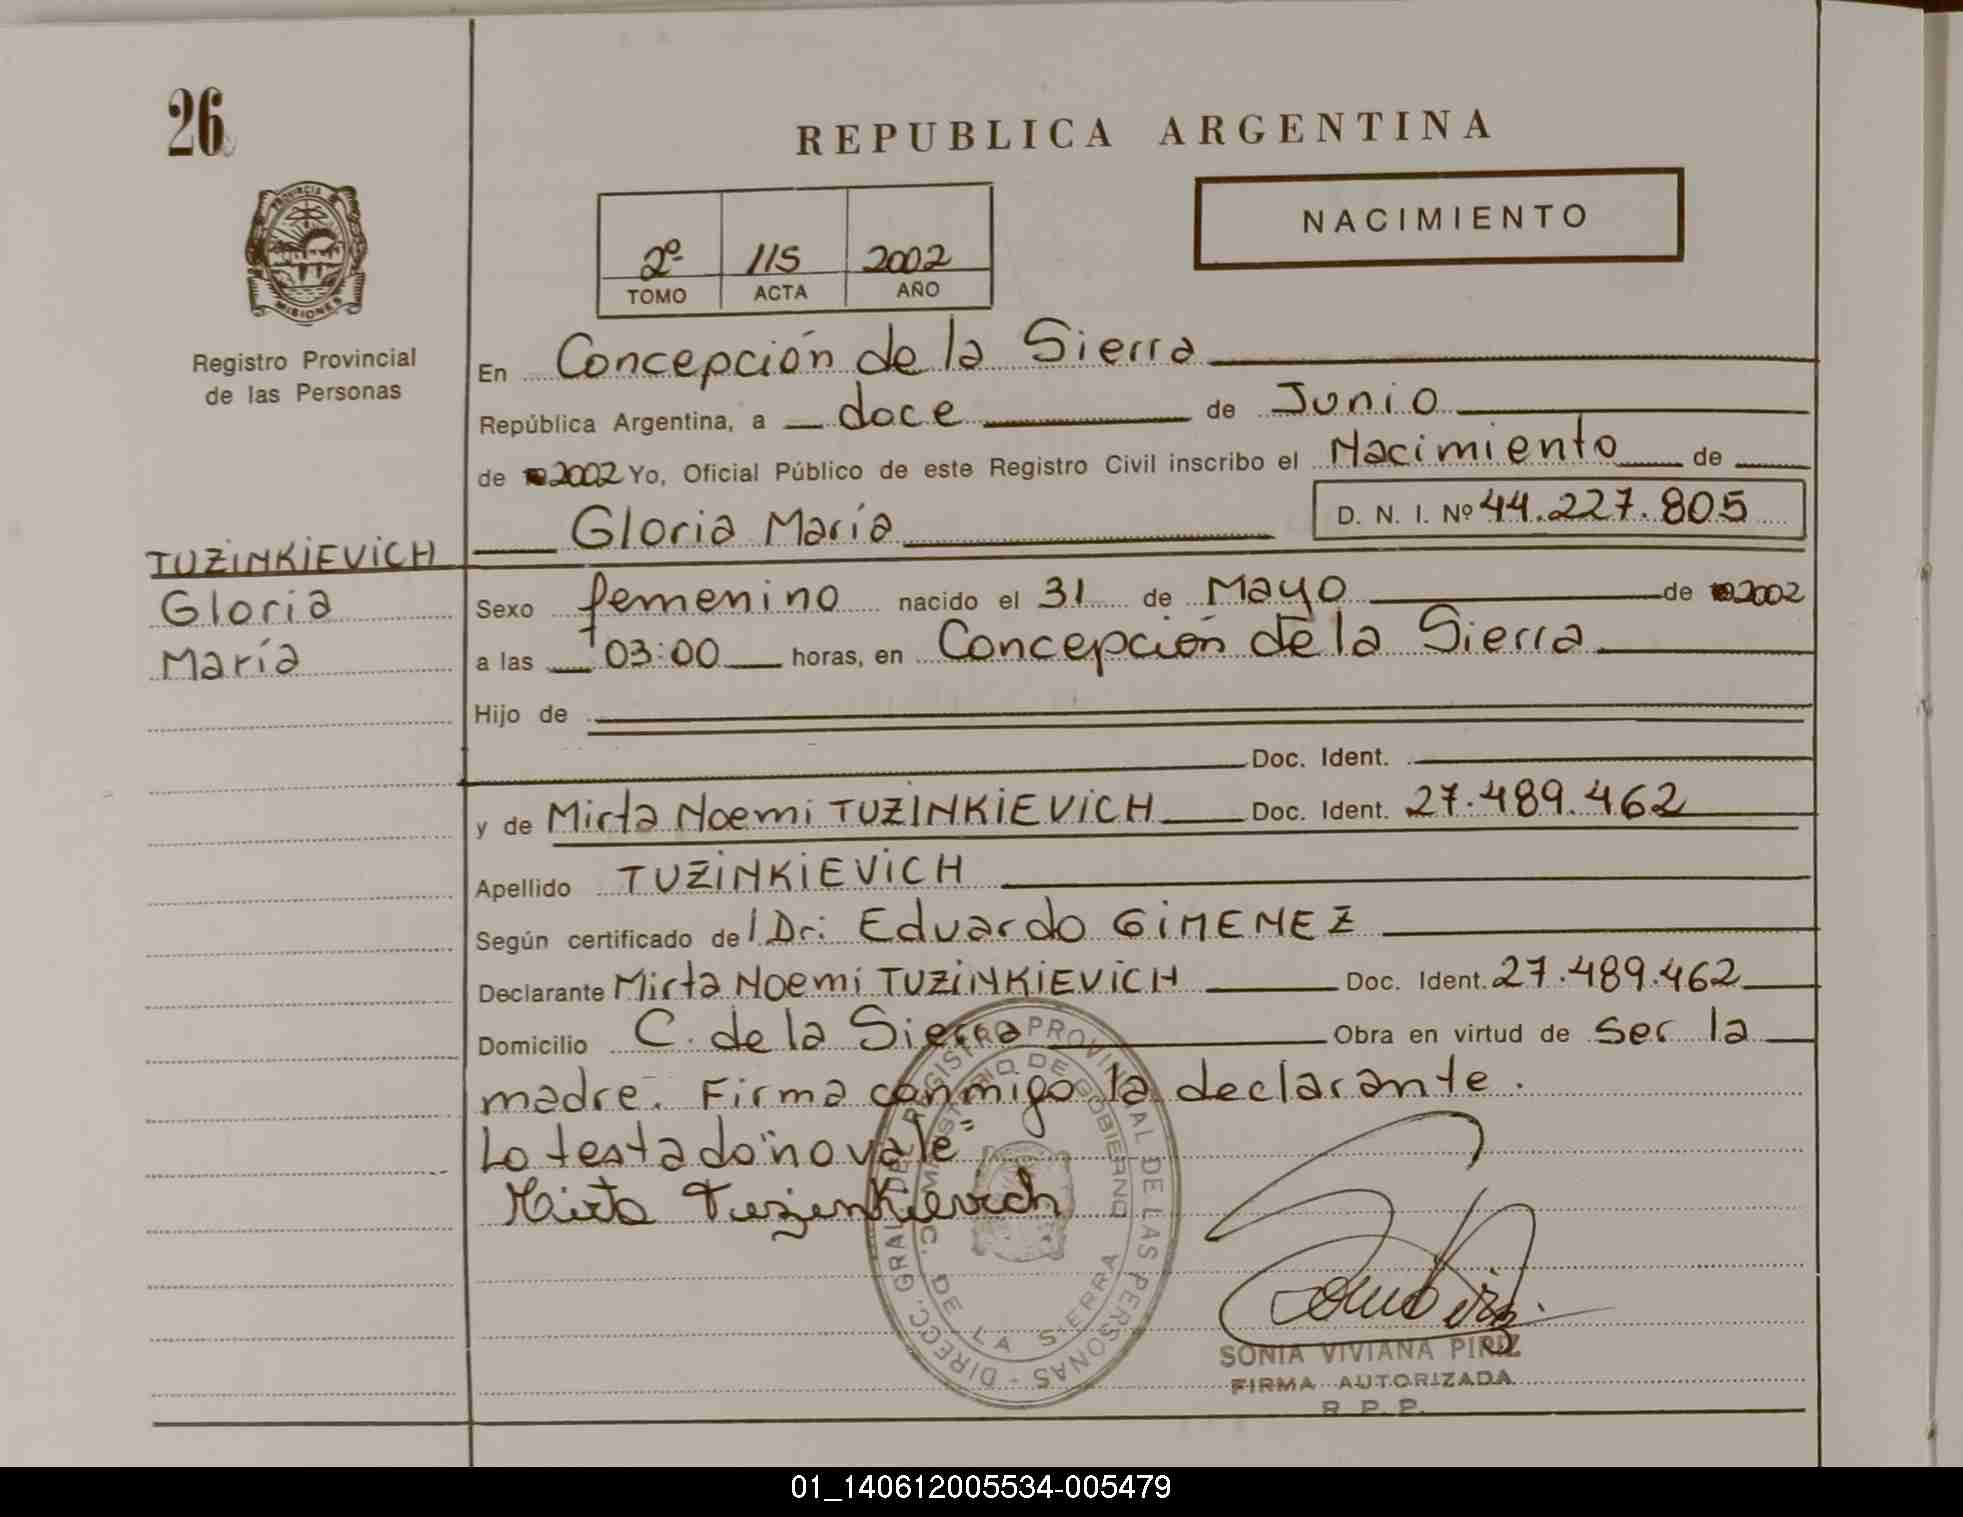 26
REPUBLICA ARGENTINA
PROVINCIA
MISIONES
Registro Provincial
de las Personas
2º 115 2002
TOMO ACTA AÑO
NACIMIENTO
En Concepción de la Sierra
República Argentina, a doce de Junio
de 2002 Yo, Oficial Público de este Registro Civil inscribo el Nacimiento de
Gloria María D. N. I. Nº 44.227.805
TUZINKIEVICH
Gloria
María
Sexo femenino nacido el 31 de Mayo de 2002
a las 03:00 horas, en Concepción de la Sierra
Hijo de
Doc. Ident.
y de Mirta Noemi TUZINKIEVICH Doc. Ident. 27.489.462
Apellido TUZINKIEVICH
Según certificado de l Dr: Eduardo GIMENEZ
Declarante Mirta Noemi TUZINKIEVICH Doc. Ident. 27.489.462
Domicilio C. de la Sierra Obra en virtud de ser la
madre. Firma conmigo la declarante.
Lo testado "no vale"
Mirta Tuzinkievich
DIRECC. GRAL. DEL REGISTRO PROVINCIAL DE LAS PERSONAS
DE GOBIERNO
C. DE LA SIERRA
SONIA VIVIANA PIRIZ
FIRMA AUTORIZADA
R. P. P.
01_140612005534-005479